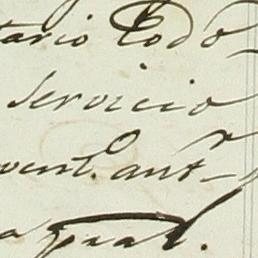 tario Todo
servicio
vent.º ant.r
a qual.